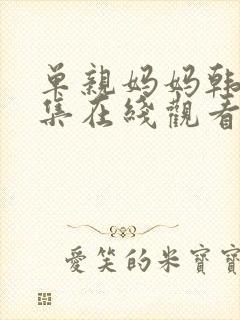 单親妈妈韩
集在线觀看
愛笑的米寶寶